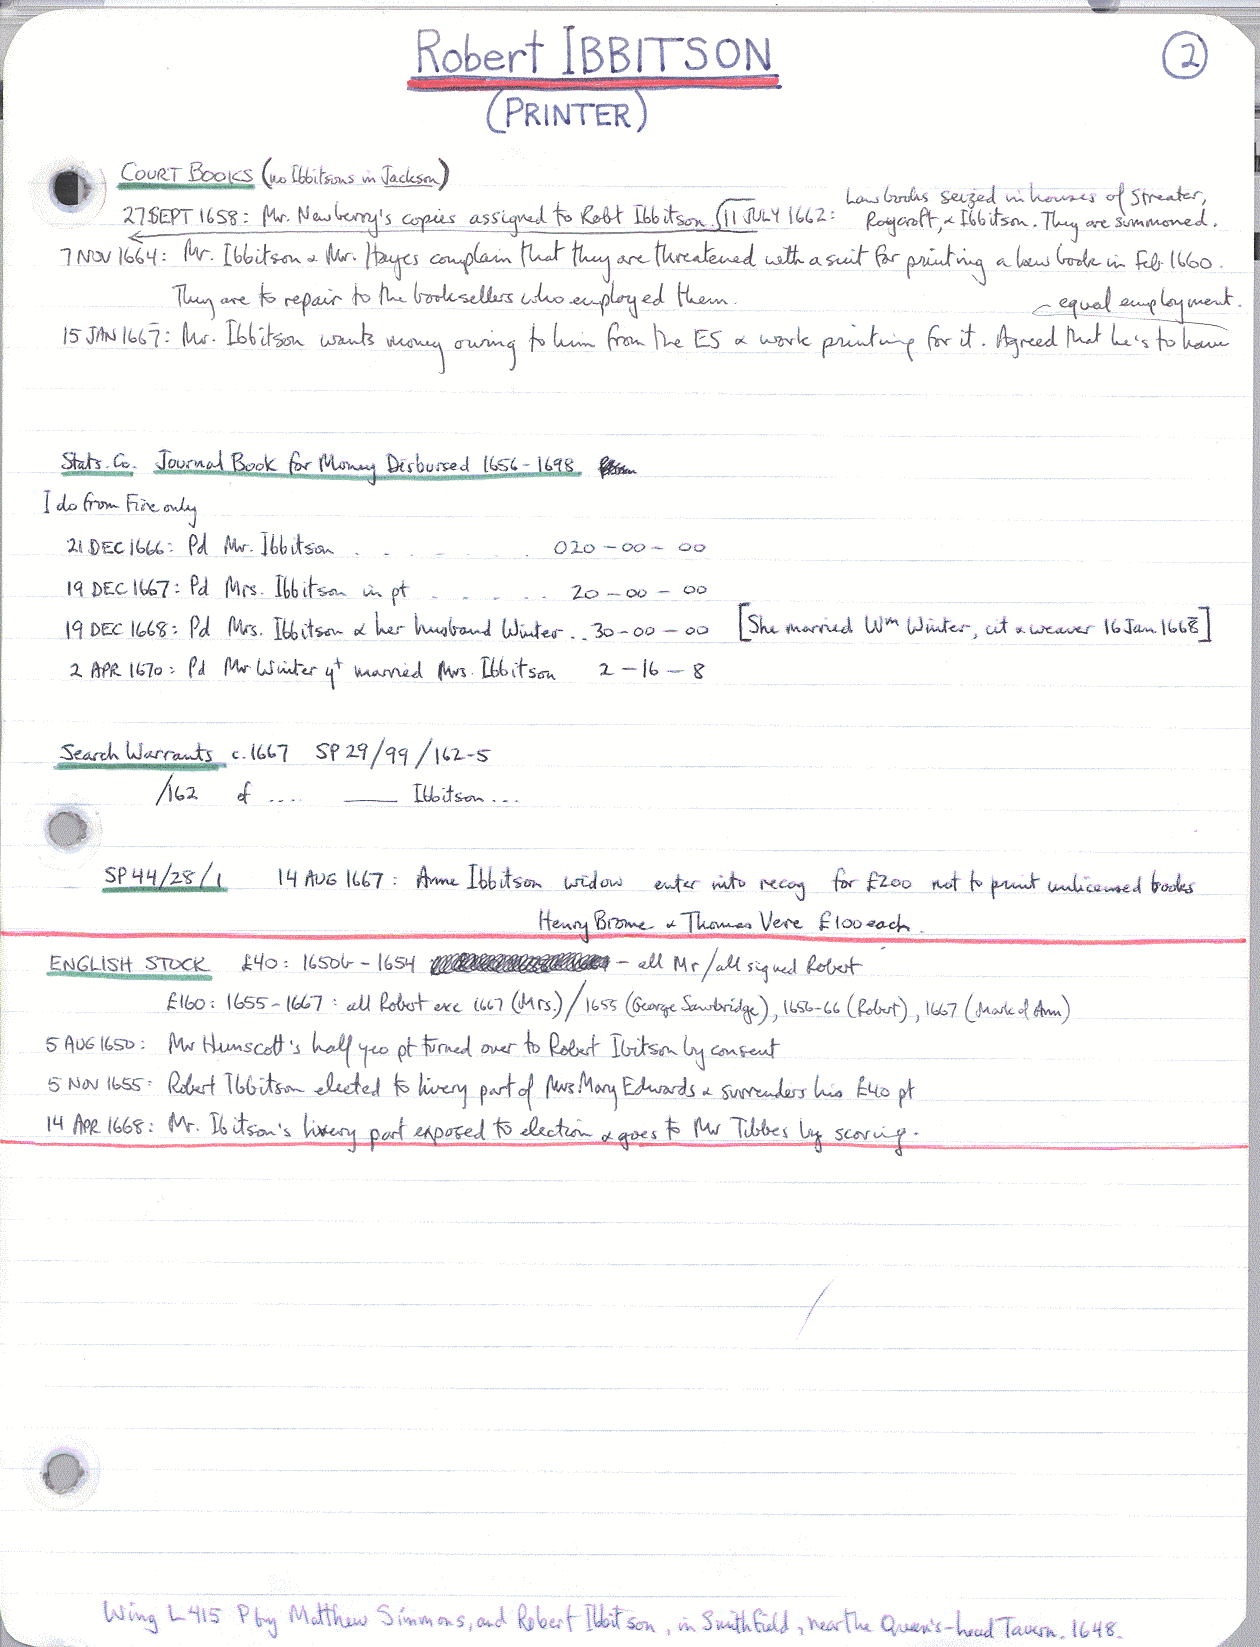 Robert IBBITSON
2
(PRINTER)
COURT BOOKS (no Ibbitsons in Jackson)
27 SEPT 1658: Mr. Newberry's copies assigned to Robt Ibbitson. 11 JULY 1662: Law books seized in houses of Streater,
Roycroft, & Ibbitson. They are summoned.
7 NOV 1664: Mr. Ibbitson & Mr. Hayes complain that they are threatened with a suit for printing a law book in Feb 1660.
They are to repair to the booksellers who employed them.
15 JAN 1667: Mr. Ibbitson wants money owing to him from the ES & work printing for it. Agreed that he's to have
equal employment.
Stats. Co. Journal Book for Money Disbursed 1656-1698
I do from Fire only
21 DEC 1666: Pd Mr. Ibbitson . . . . 020-00-00
19 DEC 1667: Pd Mrs. Ibbitson in pt . . . . 20-00-00
19 DEC 1668: Pd Mrs. Ibbitson & her husband Winter .. 30-00-00 [She married Wm Winter, cit & weaver 16 Jan. 1668]
2 APR 1670: Pd Mr Winter yt married Mrs. Ibbitson 2-16-8
Search Warrants c.1667 SP 29/99/162-5
/162 of .... ____ Ibbitson...
SP44/28/1 14 AUG 1667: Anne Ibbitson widow enter into recog for £200 not to print unlicensed books
Henry Brome & Thomas Vere £100 each.
ENGLISH STOCK £40: 1650b-1654 - all Mr/all signed Robert
£160: 1655-1667: all Robert exc 1667 (Mrs.)/1655 (George Sawbridge), 1656-66 (Robert), 1667 (Mark of Ann)
5 AUG 1650: Mr Hunscott's half yeo pt turned over to Robert Ibitson by consent
5 NOV 1655: Robert Ibbitson elected to livery part of Mrs. Mary Edwards & surrenders his £40 pt
14 APR 1668: Mr. Ibitson's livery part exposed to election & goes to Mr Tibbes by scoring.
Wing L415 P by Matthew Simmons, and Robert Ibbitson, in Smithfield, near the Queen's-head Tavern. 1648.